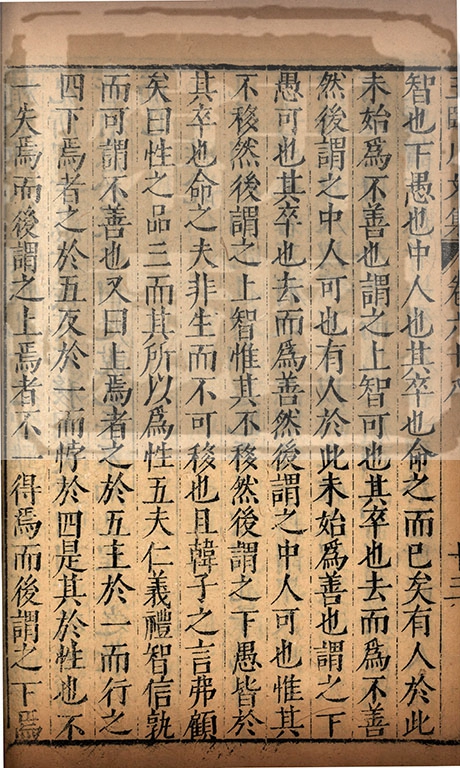 王臨川文集 卷六十八
智也下愚也中人也其卒也命之而已矣有人於此
未始爲不善也謂之上智可也其卒也去而爲不善
然後謂之中人可也有人於此未始爲善也謂之下
愚可也其卒也去而爲善然後謂之中人可也惟其
不移然後謂之上智惟其不移然後謂之下愚皆於
其卒也命之夫非生而不可移也且韓子之言弗顧
矣曰性之品三而其所以爲性五夫仁義禮智信孰
而可謂不善也又曰上焉者之於五主於一而行之
四下焉者之於五反於一而悖於四是其於性也不
一失焉而後謂之上焉者不一得焉而後謂之下焉